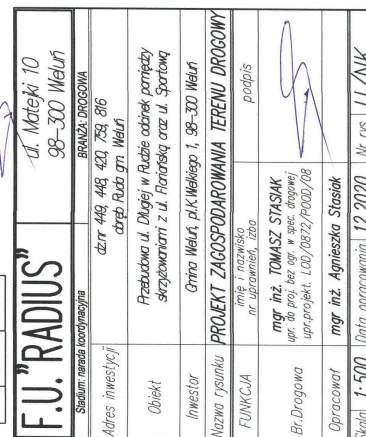 F.U."RADIUS"
ul. Matejki 10
98-300 Wieluń
Stadium: narada koordynacyjna
BRANŻA: DROGOWA
Adres inwestycji
dz.nr 449, 448, 420, 759, 816
obręb Ruda gm. Wieluń
Obiekt
Przebudowa ul. Długiej w Rudzie odcinek pomiędzy
skrzyżowaniami z ul. Floriańską oraz ul. Sportową
Inwestor
Gmina Wieluń, pl.K.Wielkiego 1, 98-300 Wieluń
Nazwa rysunku
PROJEKT ZAGOSPODAROWANIA TERENU DROGOWY
FUNKCJA
imię i nazwisko
nr uprawnień, izba
podpis
Br.Drogowa
mgr inż. TOMASZ STASIAK
upr. do proj. bez ogr. w spec. drogowej
upr.projekt. LOD/0872/POOD/08
Opracował
mgr inż. Agnieszka Stasiak
Skala 1:500
Data opracowania 12.2020
Nr rys.